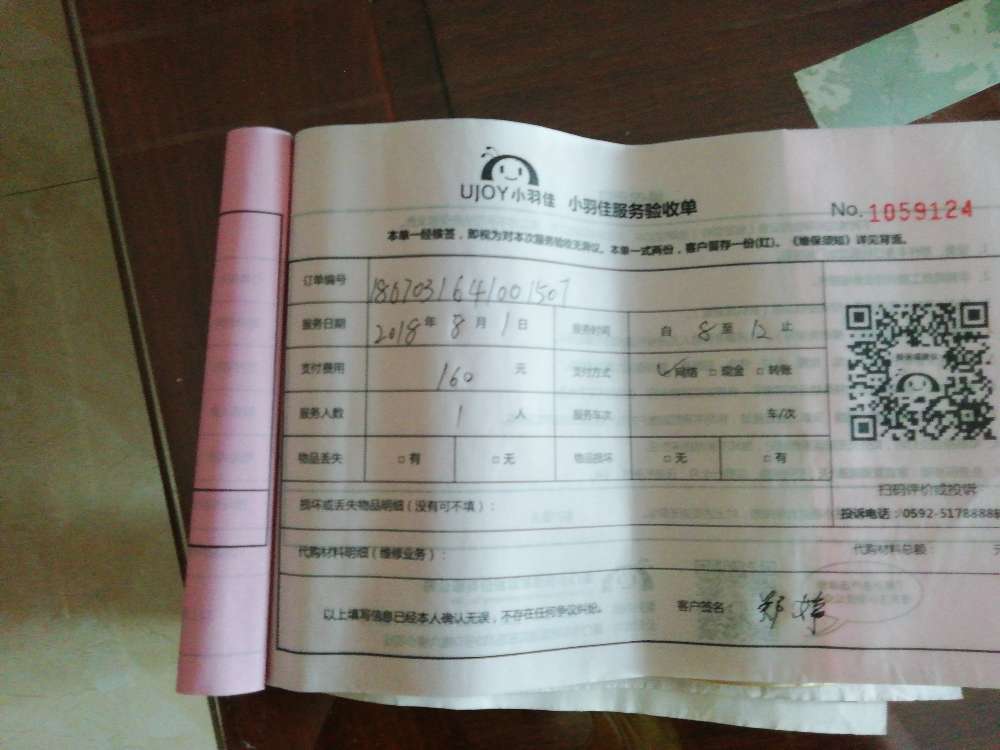 UJOY小羽佳 小羽佳服务验收单 No. 1059124
本单一经核签，即视为对本次服务验收无异议。本单一式两份，客户留存一份(红)。《维保须知》详见背面。
订单编号 1867031641001507
服务日期 2018 年 8 月 1 日 服务时间 自 8 至 12 止
支付费用 160 元 支付方式 ✓网络 □ 现金 □ 转账
服务人数 1 人 服务车次 车/次
物品丢失 □ 有 □ 无 物品损坏 □ 无 □ 有
扫码评价或投诉：
损坏或丢失物品明细（没有可不填）：
投诉电话：0592-5178888
代购材料明细（维修业务）： 代购材料总额： 元
以上填写信息已经本人确认无误，不存在任何争议纠纷。 客户签名： 郑婷